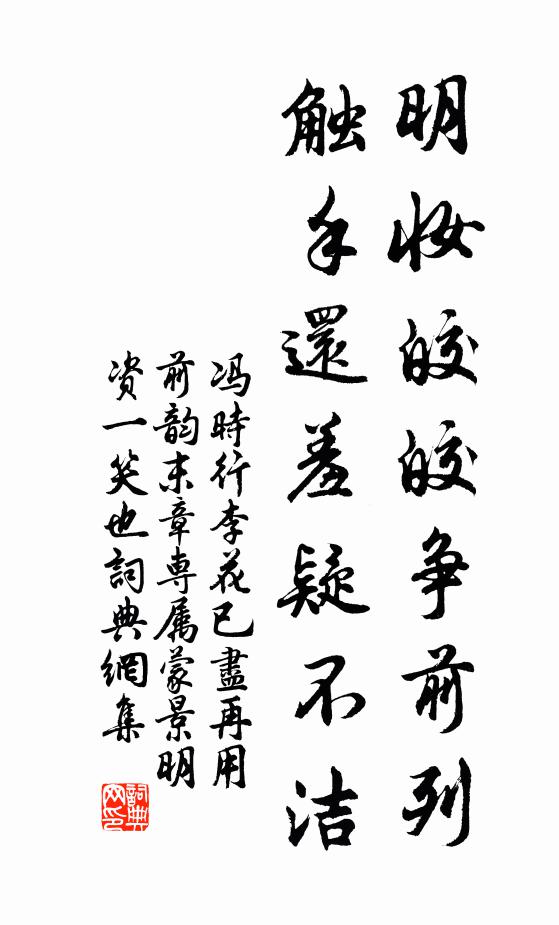 明妆皎皎争前列
触手還羞疑不洁
冯時行李花已盡再用
前韵末章専属蒙景明
资一笑也詞典網集
詞典网印